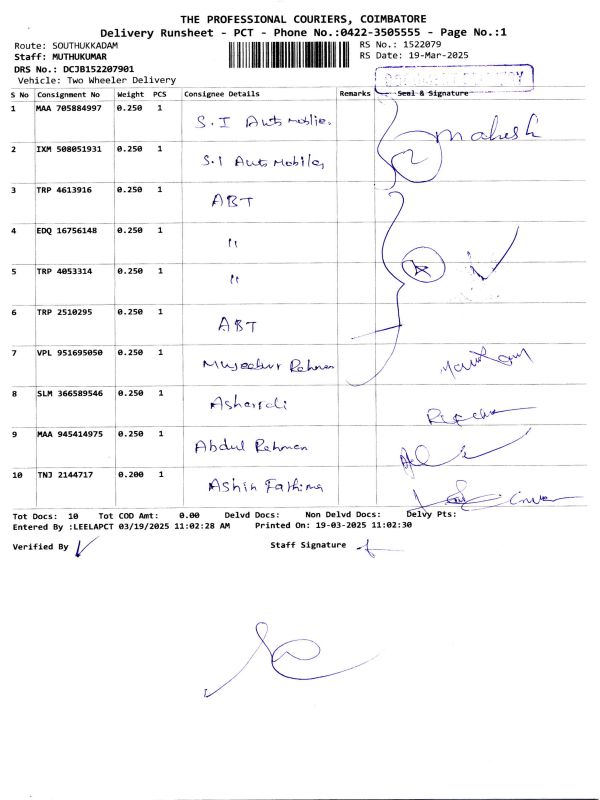 THE PROFESSIONAL COURIERS, COIMBATORE
Delivery Runsheet - PCT - Phone No.:0422-3505555 - Page No.:1
Route: SOUTHUKKADAM RS No.: 1522079
Staff: MUTHUKUMAR RS Date: 19-Mar-2025
DRS No.: DCJB152207901
Vehicle: Two Wheeler Delivery
S No Consignment No Weight PCS Consignee Details Remarks Seal & Signature
1 MAA 705884997 0.250 1 S.I Automobiles Mahesh
2 IXM 508051931 0.250 1 S.I Automobiles
3 TRP 4613916 0.250 1 ABT
4 EDQ 16756148 0.250 1 "
5 TRP 4053314 0.250 1 "
6 TRP 2510295 0.250 1 ABT
7 VPL 951695050 0.250 1 Mujeebur Rehman
8 SLM 366589546 0.250 1
9 MAA 945414975 0.250 1 Abdul Rehman
10 TNJ 2144717 0.200 1 Ashin Fathima
Tot Docs: 10 Tot COD Amt: 0.00 Delvd Docs: Non Delvd Docs: Delvy Pts:
Entered By :LEELAPCT 03/19/2025 11:02:28 AM Printed On: 19-03-2025 11:02:30
Verified By Staff Signature